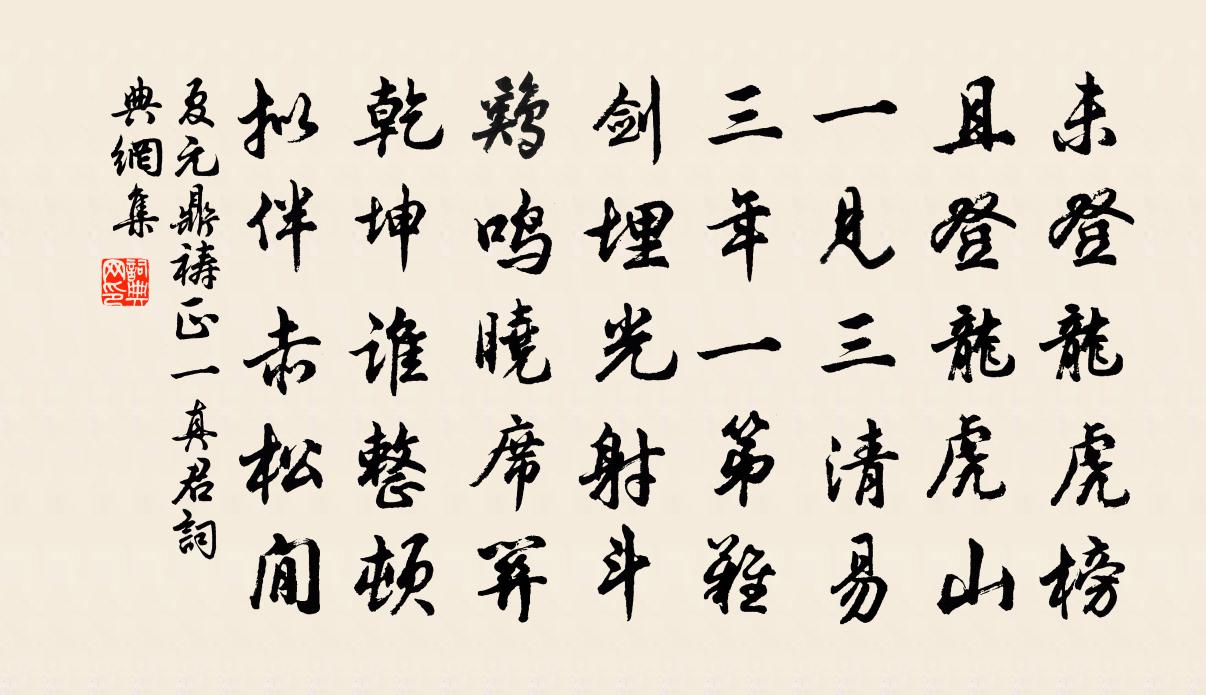 未登龍虎榜
且登龍虎山
一見三清易
三年一第難
劍埋光射斗
鷄鳴曉席開
乾坤誰整頓
拟伴赤松閒
夏元鼎禱正一真君詞
典網集
詞典网印